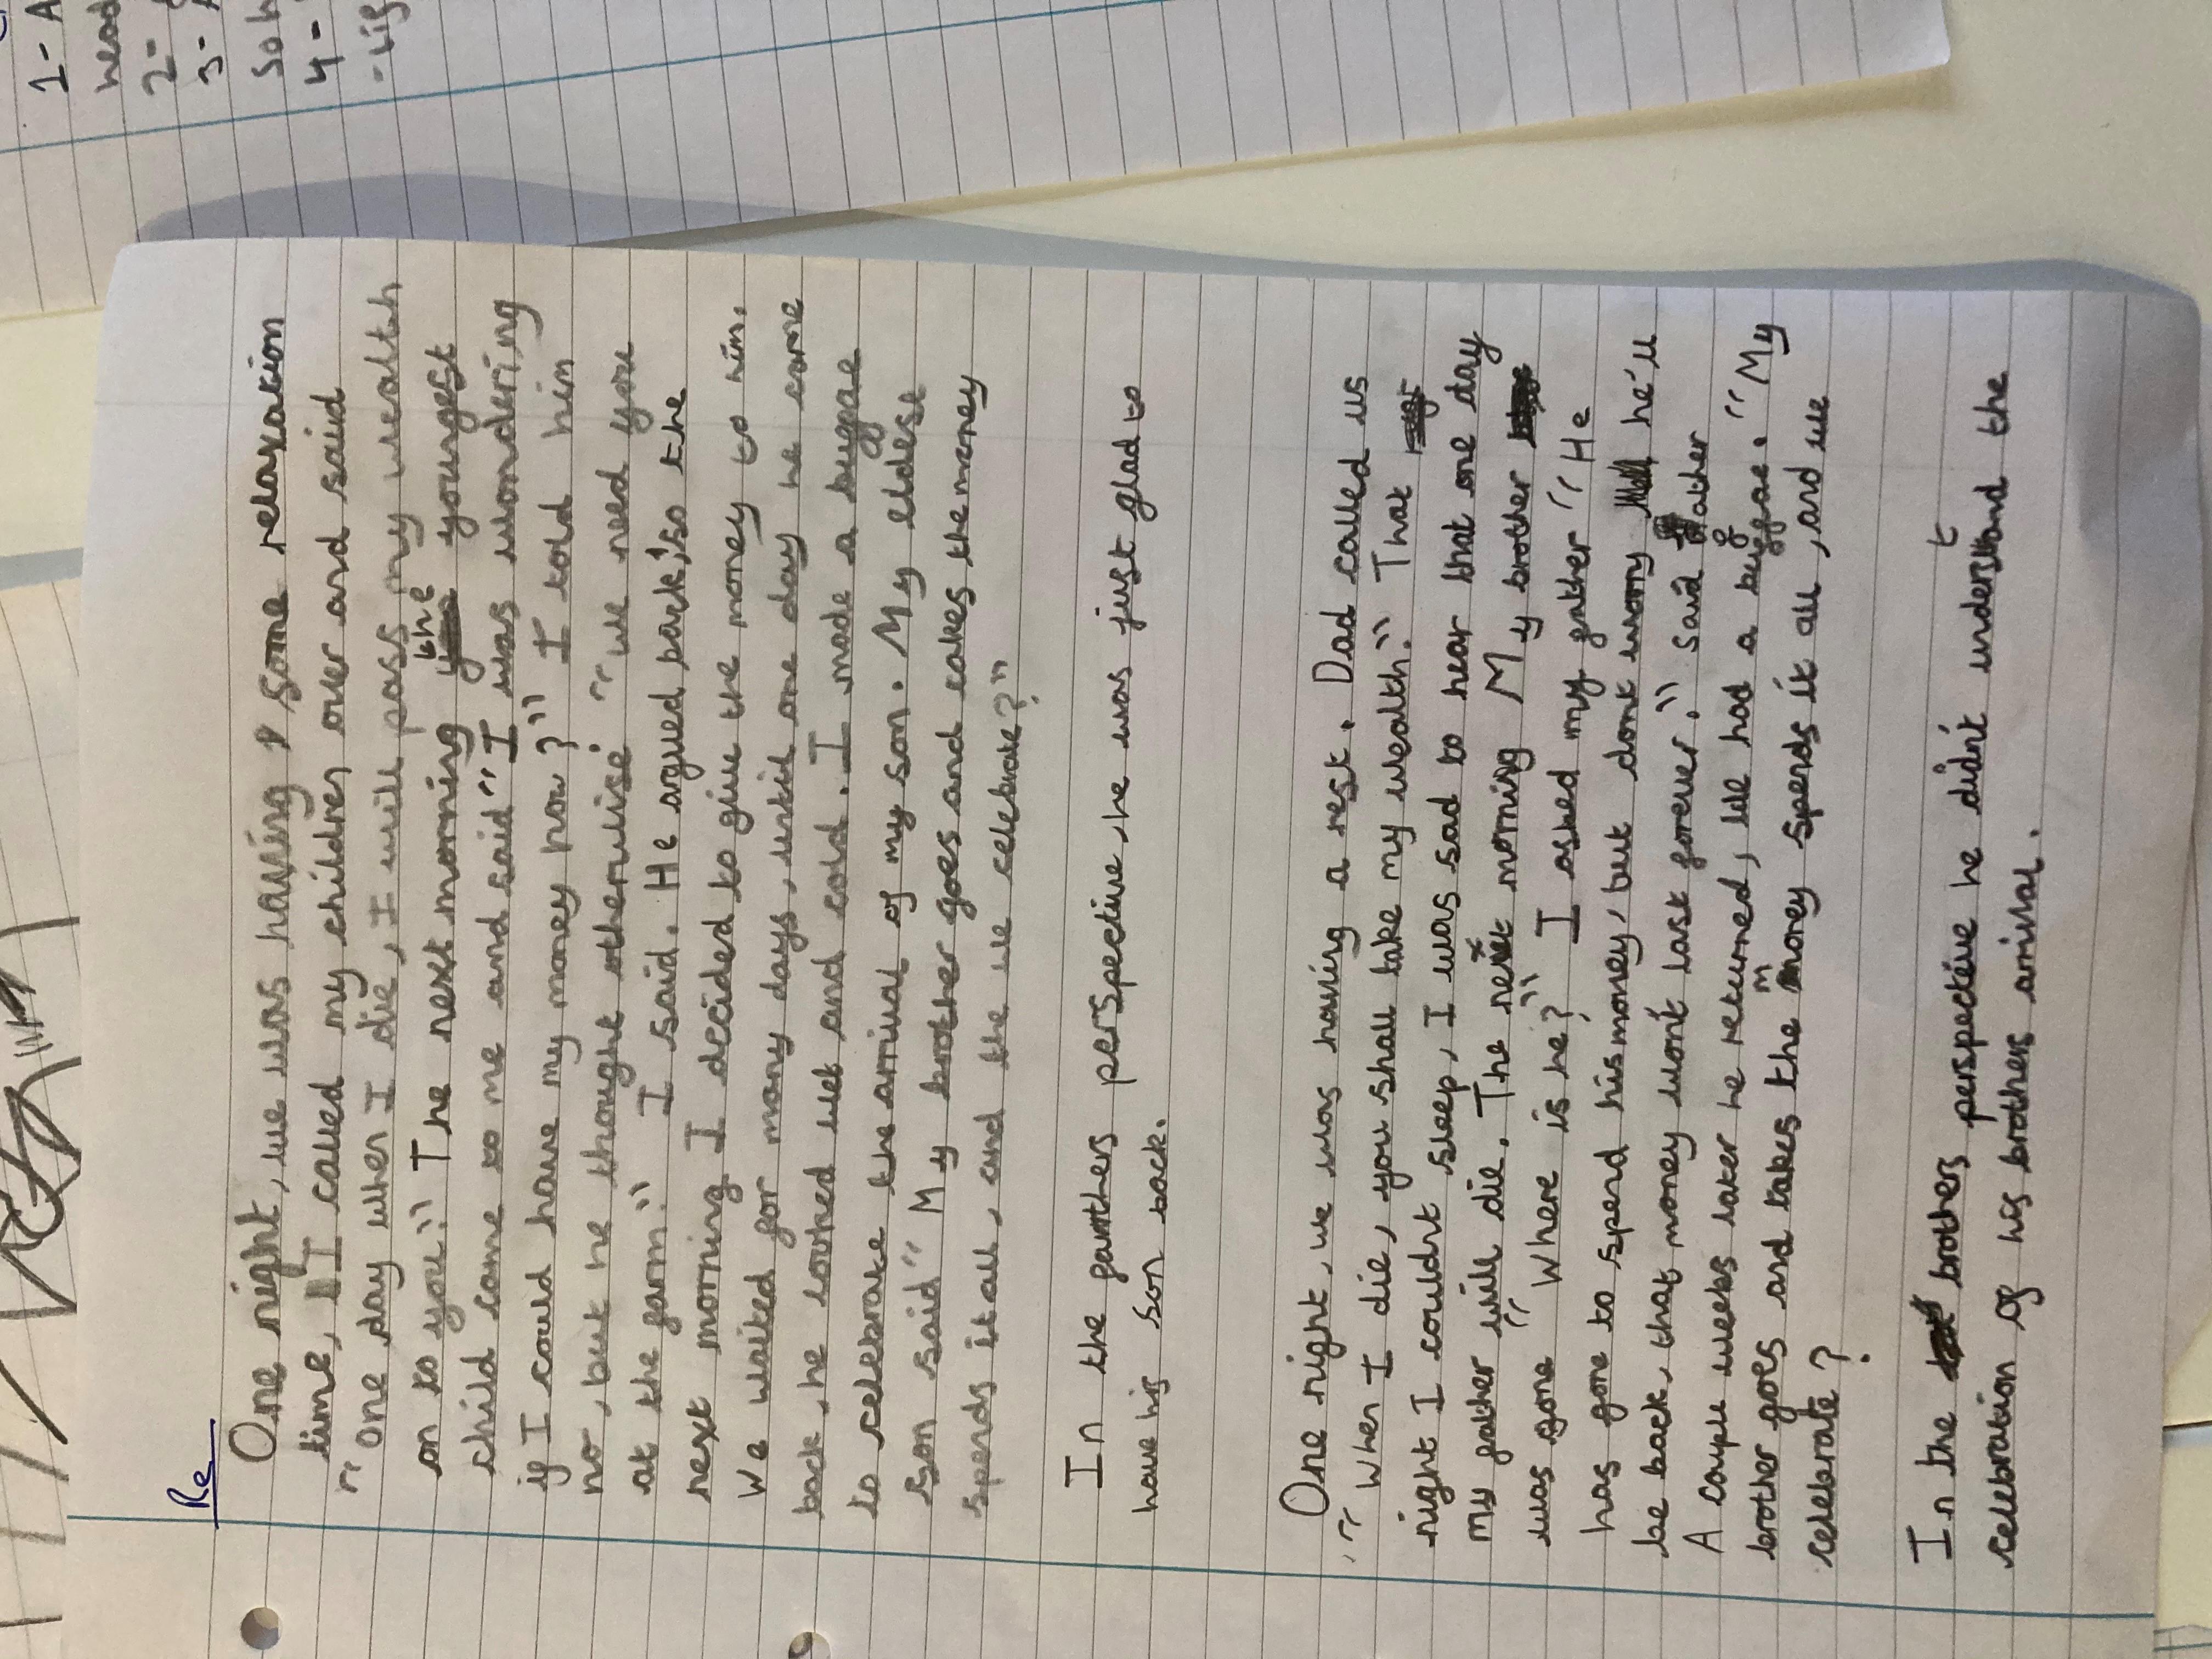 Re
One night, we was having some relaxation
time, I called my children over and said
"One day when I die, I will pass my wealth
on to you." The next morning the youngest
child came to me and said "I was wondering
if I could have my money now?" I told him
no, but he thought otherwise "we need you
at the farm." I said. He argued back, so the
next morning I decided to give the money to him.
We waited for many days, until one day he came
back, he looked wet and cold. I made a buffae
to celebrate the arrival of my son. My eldest
son said "My brother goes and takes the money
spends it all, and the we celebrate?"
In the fathers perspective, he was just glad to
have his son back.
One night, we was having a rest. Dad called us
"When I die, you shall take my wealth." That
night I couldnt sleep, I was sad to hear that one day
my father will die. The next morning My brother
was gone "Where is he?" I asked my father "He
has gone to spend his money, but dont worry he'll
be back, that money won't last forever." said father
A couple weeks later he returned, we had a buffae. "My
brother goes and takes the money spends it all, and we
celebrate?
In the brothers perspective he didn't understand the
celebration of his brothers arrival.
1 - A
head
2 -
3 -
so h
4 -
- lig